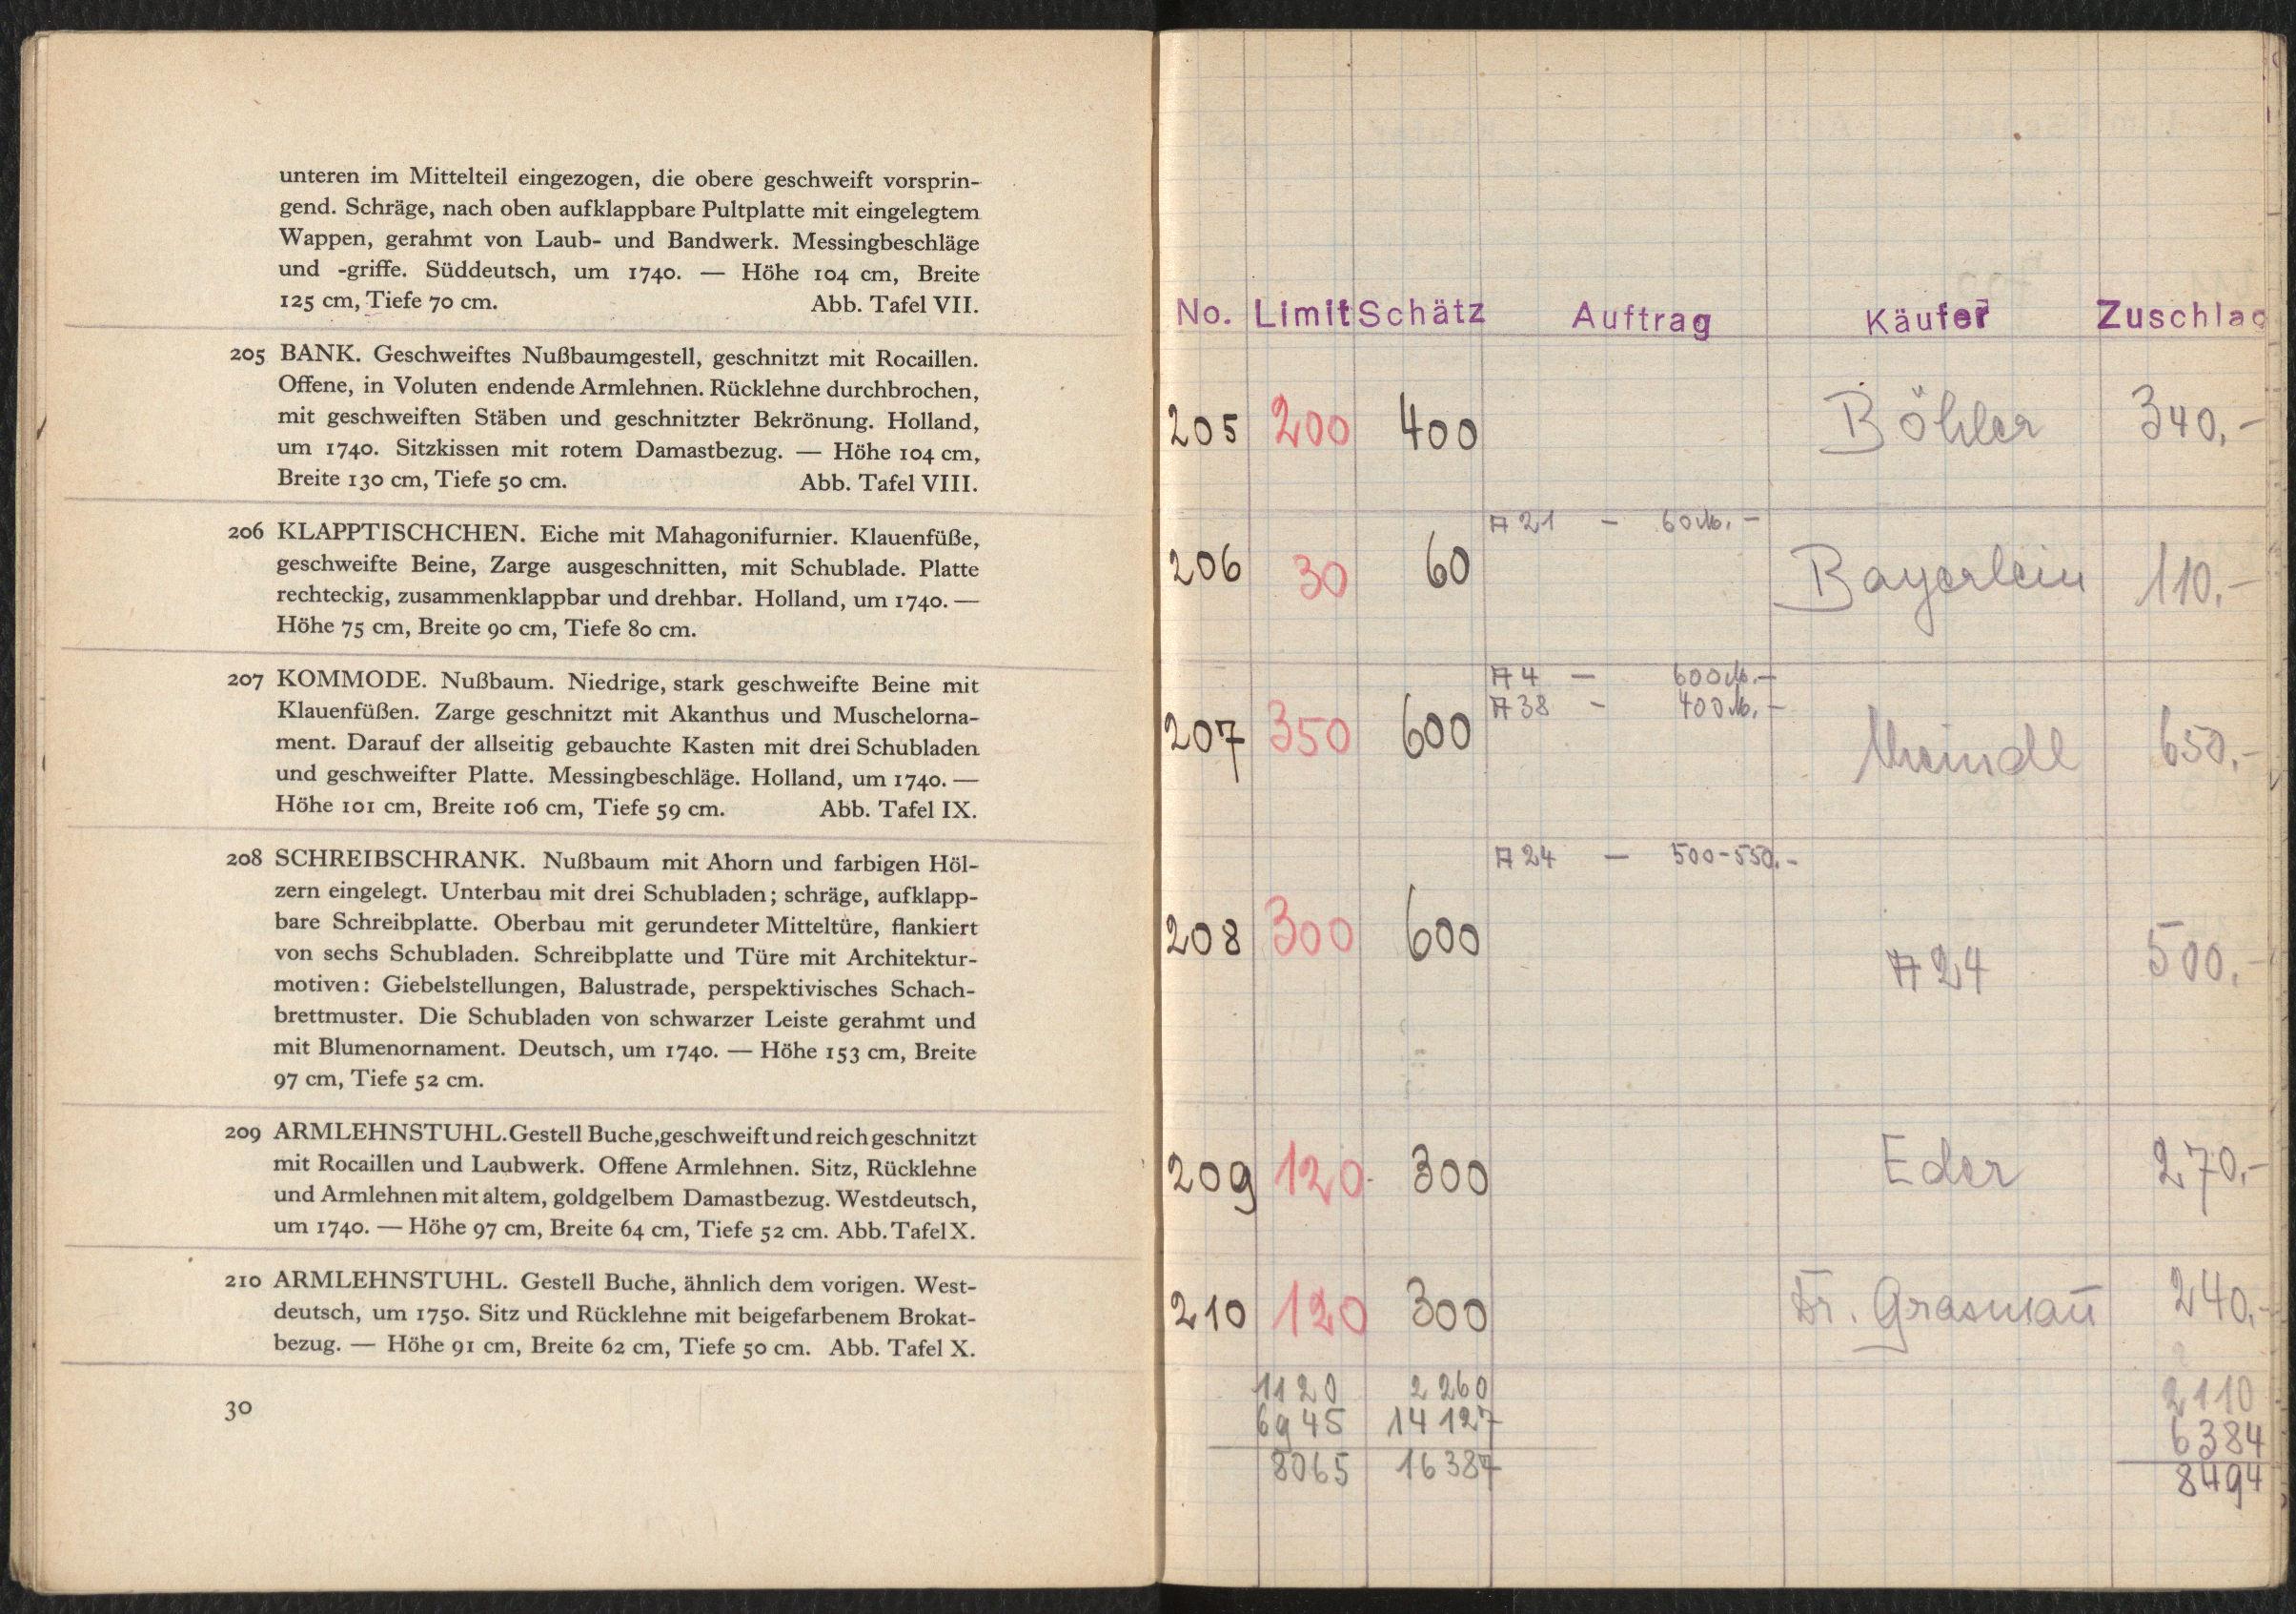 unteren im Mittelteil eingezogen, die obere geschweift vorsprin-
gend. Schräge, nach oben aufklappbare Pultplatte mit eingelegtem
Wappen, gerahmt von Laub- und Bandwerk. Messingbeschläge
und -griffe. Süddeutsch, um 1740. — Höhe 104 cm, Breite
125 cm, Tiefe 70 cm. Abb. Tafel VII.
205 BANK. Geschweiftes Nußbaumgestell, geschnitzt mit Rocaillen.
Offene, in Voluten endende Armlehnen. Rücklehne durchbrochen,
mit geschweiften Stäben und geschnitzter Bekrönung. Holland,
um 1740. Sitzkissen mit rotem Damastbezug. — Höhe 104 cm,
Breite 130 cm, Tiefe 50 cm. Abb. Tafel VIII.
206 KLAPPTISCHCHEN. Eiche mit Mahagonifurnier. Klauenfüße,
geschweifte Beine, Zarge ausgeschnitten, mit Schublade. Platte
rechteckig, zusammenklappbar und drehbar. Holland, um 1740. —
Höhe 75 cm, Breite 90 cm, Tiefe 80 cm.
207 KOMMODE. Nußbaum. Niedrige, stark geschweifte Beine mit
Klauenfüßen. Zarge geschnitzt mit Akanthus und Muschelorna-
ment. Darauf der allseitig gebauchte Kasten mit drei Schubladen
und geschweifter Platte. Messingbeschläge. Holland, um 1740. —
Höhe 101 cm, Breite 106 cm, Tiefe 59 cm. Abb. Tafel IX.
208 SCHREIBSCHRANK. Nußbaum mit Ahorn und farbigen Höl-
zern eingelegt. Unterbau mit drei Schubladen; schräge, aufklapp-
bare Schreibplatte. Oberbau mit gerundeter Mitteltüre, flankiert
von sechs Schubladen. Schreibplatte und Türe mit Architektur-
motiven: Giebelstellungen, Balustrade, perspektivisches Schach-
brettmuster. Die Schubladen von schwarzer Leiste gerahmt und
mit Blumenornament. Deutsch, um 1740. — Höhe 153 cm, Breite
97 cm, Tiefe 52 cm.
209 ARMLEHNSTUHL. Gestell Buche, geschweift und reich geschnitzt
mit Rocaillen und Laubwerk. Offene Armlehnen. Sitz, Rücklehne
und Armlehnen mit altem, goldgelbem Damastbezug. Westdeutsch,
um 1740. — Höhe 97 cm, Breite 64 cm, Tiefe 52 cm. Abb. Tafel X.
210 ARMLEHNSTUHL. Gestell Buche, ähnlich dem vorigen. West-
deutsch, um 1750. Sitz und Rücklehne mit beigefarbenem Brokat-
bezug. — Höhe 91 cm, Breite 62 cm, Tiefe 50 cm. Abb. Tafel X.
30
No. Limit Schätz Auftrag Käufer Zuschlag
205 200 400 Böhler 340,-
A 21 - 60 M. -
206 30 60 Bayerlein 110,-
A 4 - 600 M. -
A 38 - 400 M. -
207 350 600 Meindl 650,-
A 24 - 500-550.-
208 300 600 A 24 500,-
209 120 300 Eder 270,-
210 120 300 Dr. Grasmañ 240,-
1120 2260 2110
6945 14127 6384
8065 16387 8494